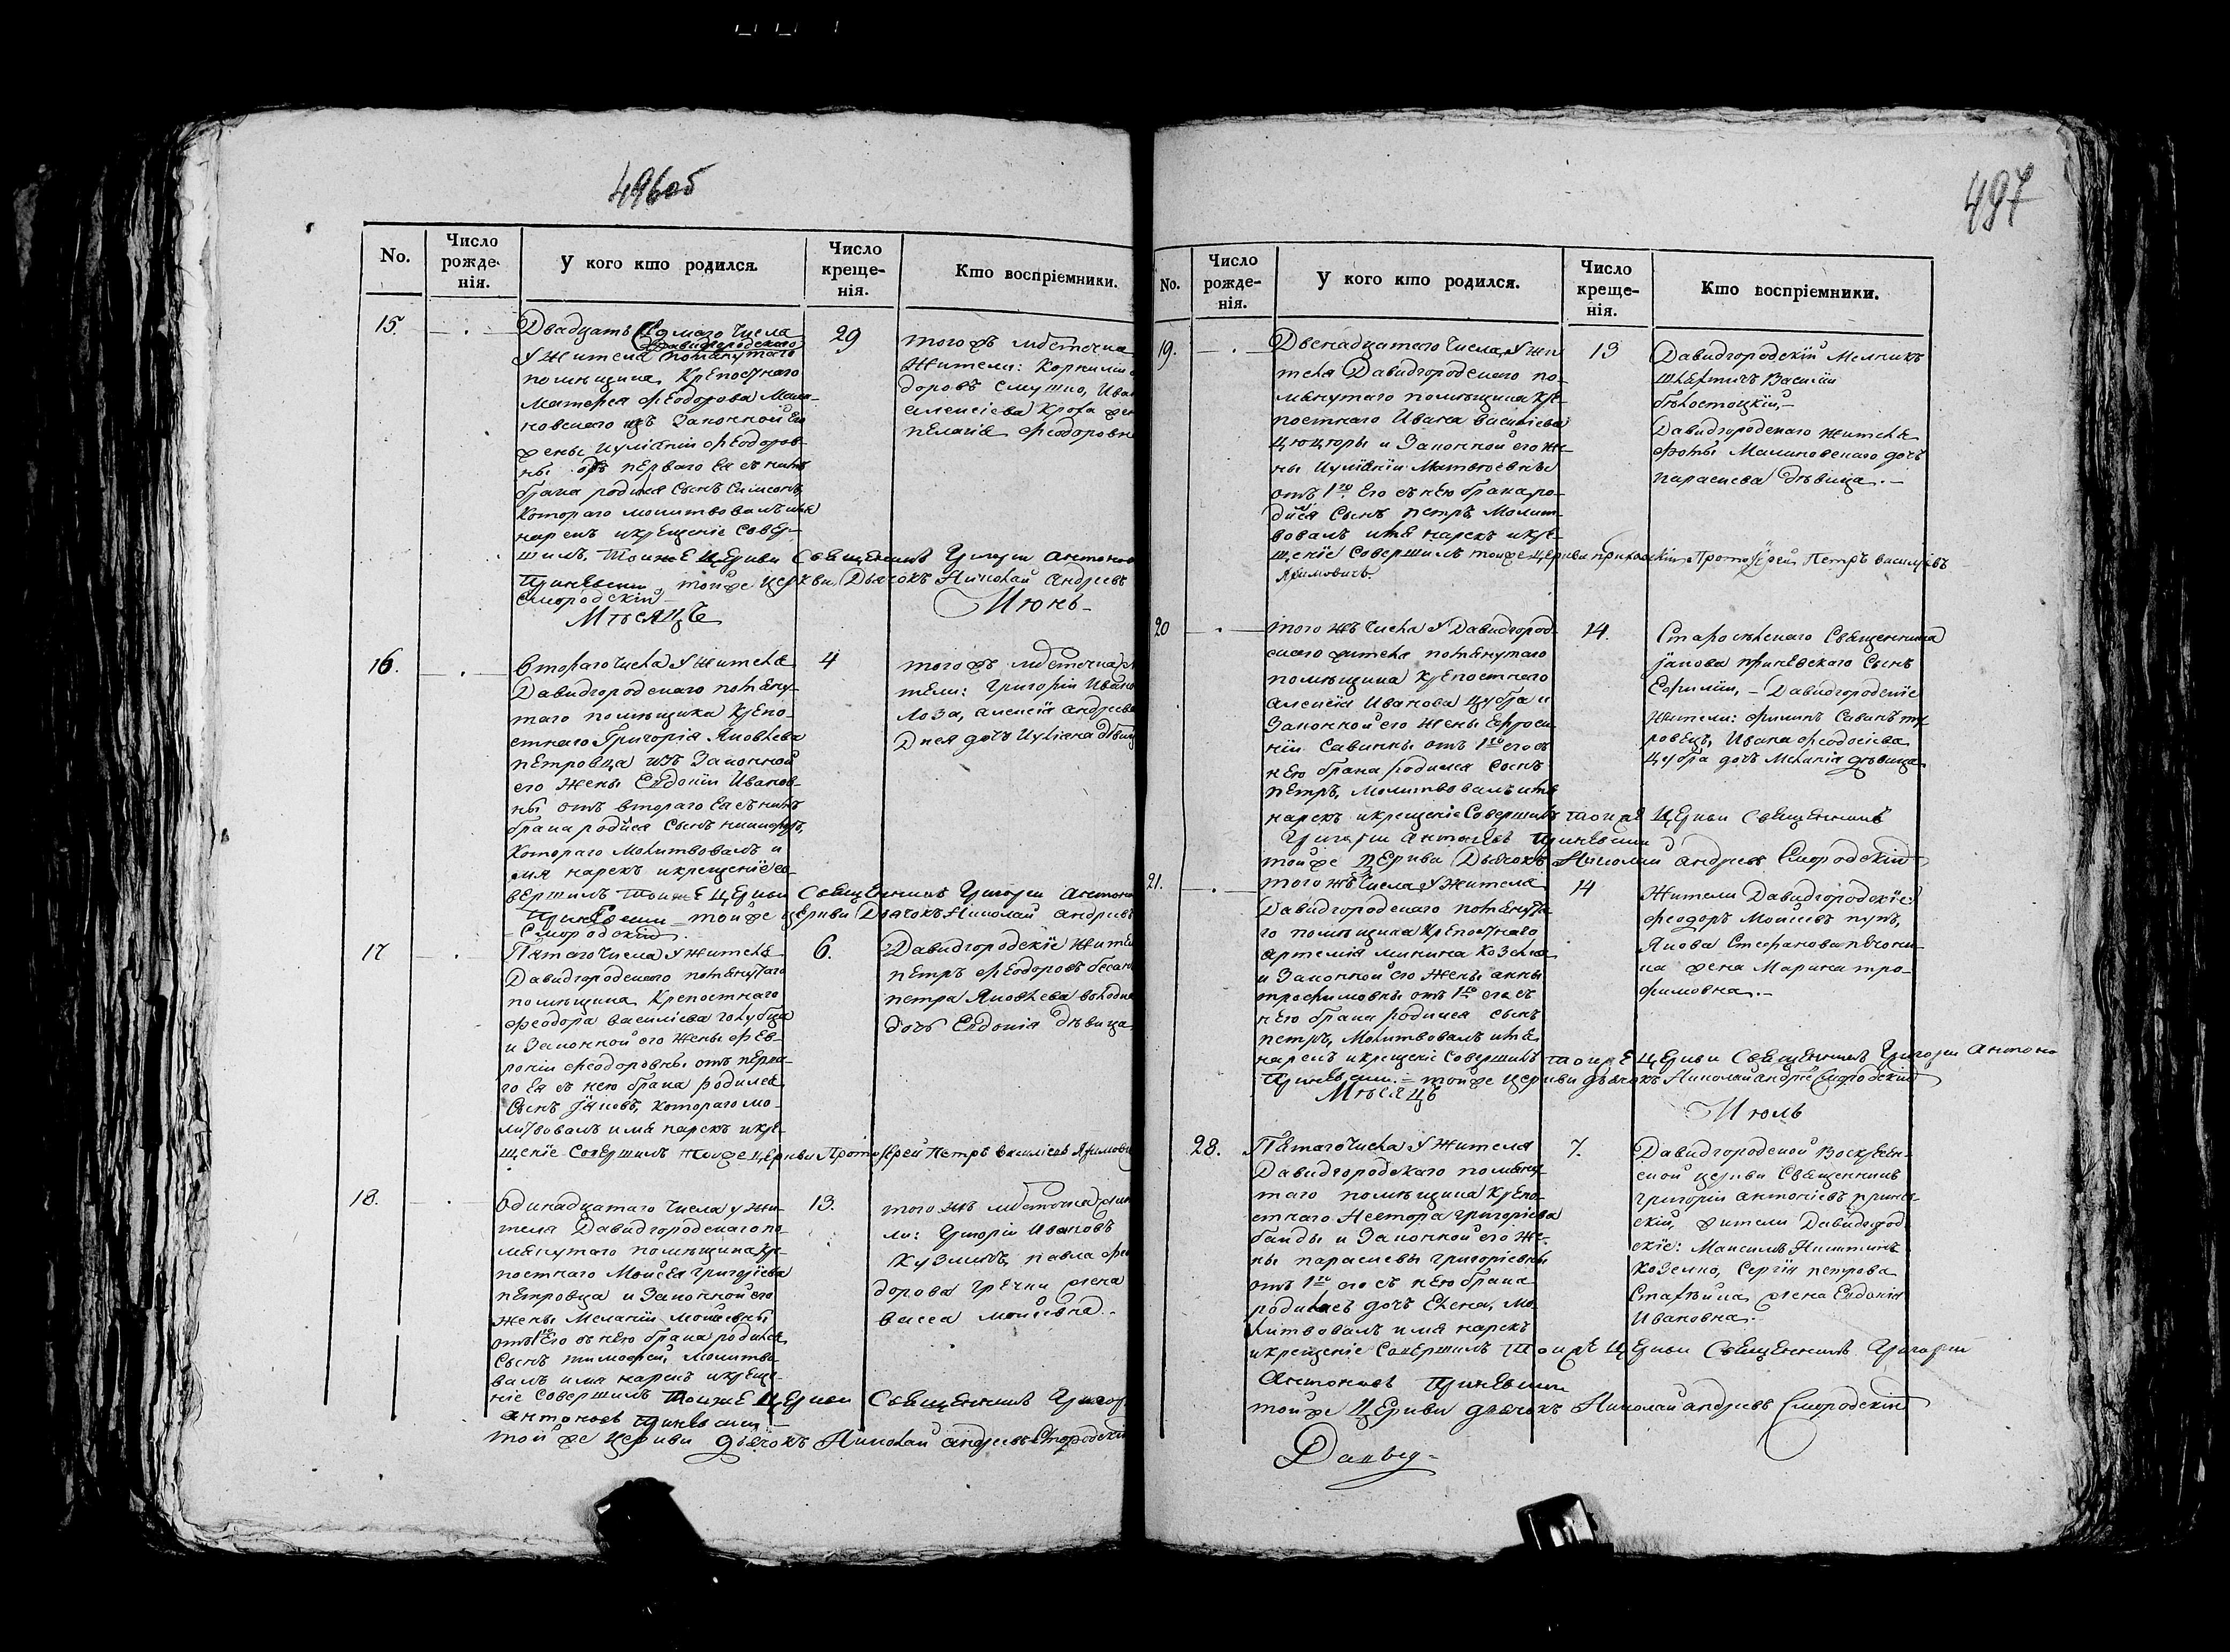 496об
No.
Число рожде-нія.
У кого кто родился.
Число креще-нія.
Кто воспріемники.
15.
Двадцать седмаго Числа
Давидгородскаго
У Жителя помянутаго
помѣщика Крепостнаго
Матфея Феодорова Мали-
новскаго изъ Законной Его
жены Иулiянiи Феодоров-
ны отъ перваго Ея съ нимъ
брака родился Сынъ Симеонъ,
Котораго молитвовалъ имя
нарекъ икрещеніе Совер-
шилъ, Тоиже Церкви Священникъ Григорiй Антонов
Прилѣвскiй тойже церкви Дьячокъ Николай Андреевъ
Смородскій
29
того жъ мѣстечка
Жители: Корнилiй
доровъ Смушко, Иван
Алексіева Кроха жен
Пелагія Феодоровн
Мѣсяцъ
Июнь
16.
Втораго Числа У Жителя
Давидгородскаго помяну-
таго помѣщика Крепо-
стнаго Григорія Яковлева
Петровца изъ Законной
его Жены Евдокiи Иванов-
ны отъ втораго Ея съ нимъ
брака родйся Сынъ Никифоръ,
Котораго Молитвовалъ и
мя нарекъ икрещеніе со-
вершилъ Тоиже Церкви Священникъ Григорiй Антонов
тойже Церкви Дьячокъ Николай Андреевъ
Смородскій
4
того жъ мѣстечка жи
тели: Григорiй Ивано
Лоза, Алексiя Андреева
дочь Иуліана дѣвиц
17
Пятаго Числа У Жителя
Давидгородскаго помянутаго
помѣщика Крепостнаго
Феодора Василіева Голубца
и Законной его Жены Фев-
роніи Феодоровны отъ перва-
го Ея съ нею брака родился
Сынъ Iяковъ, Котораго мо-
литвовалъ имя нарекъ икре-
щеніе Совершилъ тойже церкви Протоіерей Петръ Василіевъ Якимови
6.
Давидгородскіе жител
Петръ Феодоровъ
Петра Яковлева
дочь Евдокія дѣвица
18.
Одинадцатаго Числа у жи-
теля Давидгородскаго по-
мянутаго помѣщика кре-
постнаго Мойсея Григорiева
Петровца и Законной его
жены Меланiи Мойсеевны
отъ 1го Его съ нею брака родился
Сынъ Тимофей, Молитво-
валъ имя нарекъ икреще-
ніе Совершилъ Тоиже Церкви Священникъ Григор
Антоновъ
тойже Церкви дьячокъ Николай Андреевъ Смородскiй
13.
того жъ мѣстечка жи
ли: Григорiй Ивановъ
Кузмичъ, Павла Фео
дорова Гречки жена
Васса Мойсеевна.
497
No.
Число рожде-нія.
У кого кто родился.
Число креще-нія.
Кто воспріемники.
19.
Двенадцатаго Числа У жи
теля Давидгородскаго по-
мянутаго помѣщика кре-
постнаго Ивана Василіева
Цюцюры и Законной его же-
ны Иуліянiи Матвѣевны
отъ 1го Его съ нею брака ро-
дися Сынъ Петръ, Молит-
вовалъ имя нарекъ икре-
щеніе Совершилъ тойже церкви приходскій Протоіерей Петръ Василіевъ
Якимовичъ.
13
Давидгородскій Мелникъ
Василiй
Бѣлостоцкій,
Давидгородскаго жителя
Фомы Малиновскаго дочь
Параскева дѣвица.
20
того жъ Числа У Давидгород-
скаго жителя помянутаго
помѣщика Крепостнаго
Алексiя Иванова Цубра и
Законной его жены Ефроси-
нiи Савины отъ 1го его съ
нею брака родился Сынъ
Петръ, молитвовалъ имя
нарекъ икрещеніе Совершилъ Тоиже Церкви Священникъ
Григорiй Антоновъ
тойже Церкви Дьячокъ Николай Андреевъ Смородскій
14.
Священника
Iякова Прилѣвскаго Сынъ
Ефимiй, – Давидгородскіе
жители: Филипъ Савинъ Пет
ровецъ, Ивана Феодосіева
Цубра дочь Меланія дѣвица
21.
того жъ Числа У Жителя
Давидгородскаго помянута
го помѣщика Крепостнаго
Артемія Минина Козела
и Законной его Жены Анны
Трофимовны отъ 1го его съ
нею брака родился сынъ
Петръ, Молитвовалъ имя
нарекъ икрещеніе Совершилъ Тоиже Церкви Священникъ Григорiй Антоно
тойже Церкви дьячокъ Николай Андреевъ Смородскій
14
Жители Давидгородскіе
Феодоръ Мойсеевъ
Якова Стефанова
жена Марина Тро-
фимовна.
Мѣсяцъ
Июль
28.
Пятаго Числа У Жителя
Давидгородскаго помяну
таго помѣщика Крепо-
стнаго Нестора Григоріева
Банды и Законной его Же-
ны Параскевы Григоріевны
отъ 1го его съ нею брака
родилась дочь Елена, Мо-
литвовалъ имя нарекъ
икрещеніе Совершилъ Тоиже Церкви Священникъ Григорiй
Антоновъ
тойже Церкви дьячокъ Николай Андреевъ Смородскій
7.
Давидгородской Воскресен-
ской церкви Священникъ
Григорiй Антонiевъ Прилѣв-
скій, жители Давидгород
скіе: Максимъ Никитинъ
Козелко, Сергiя Петрова
жена Евдокія
Ивановна.